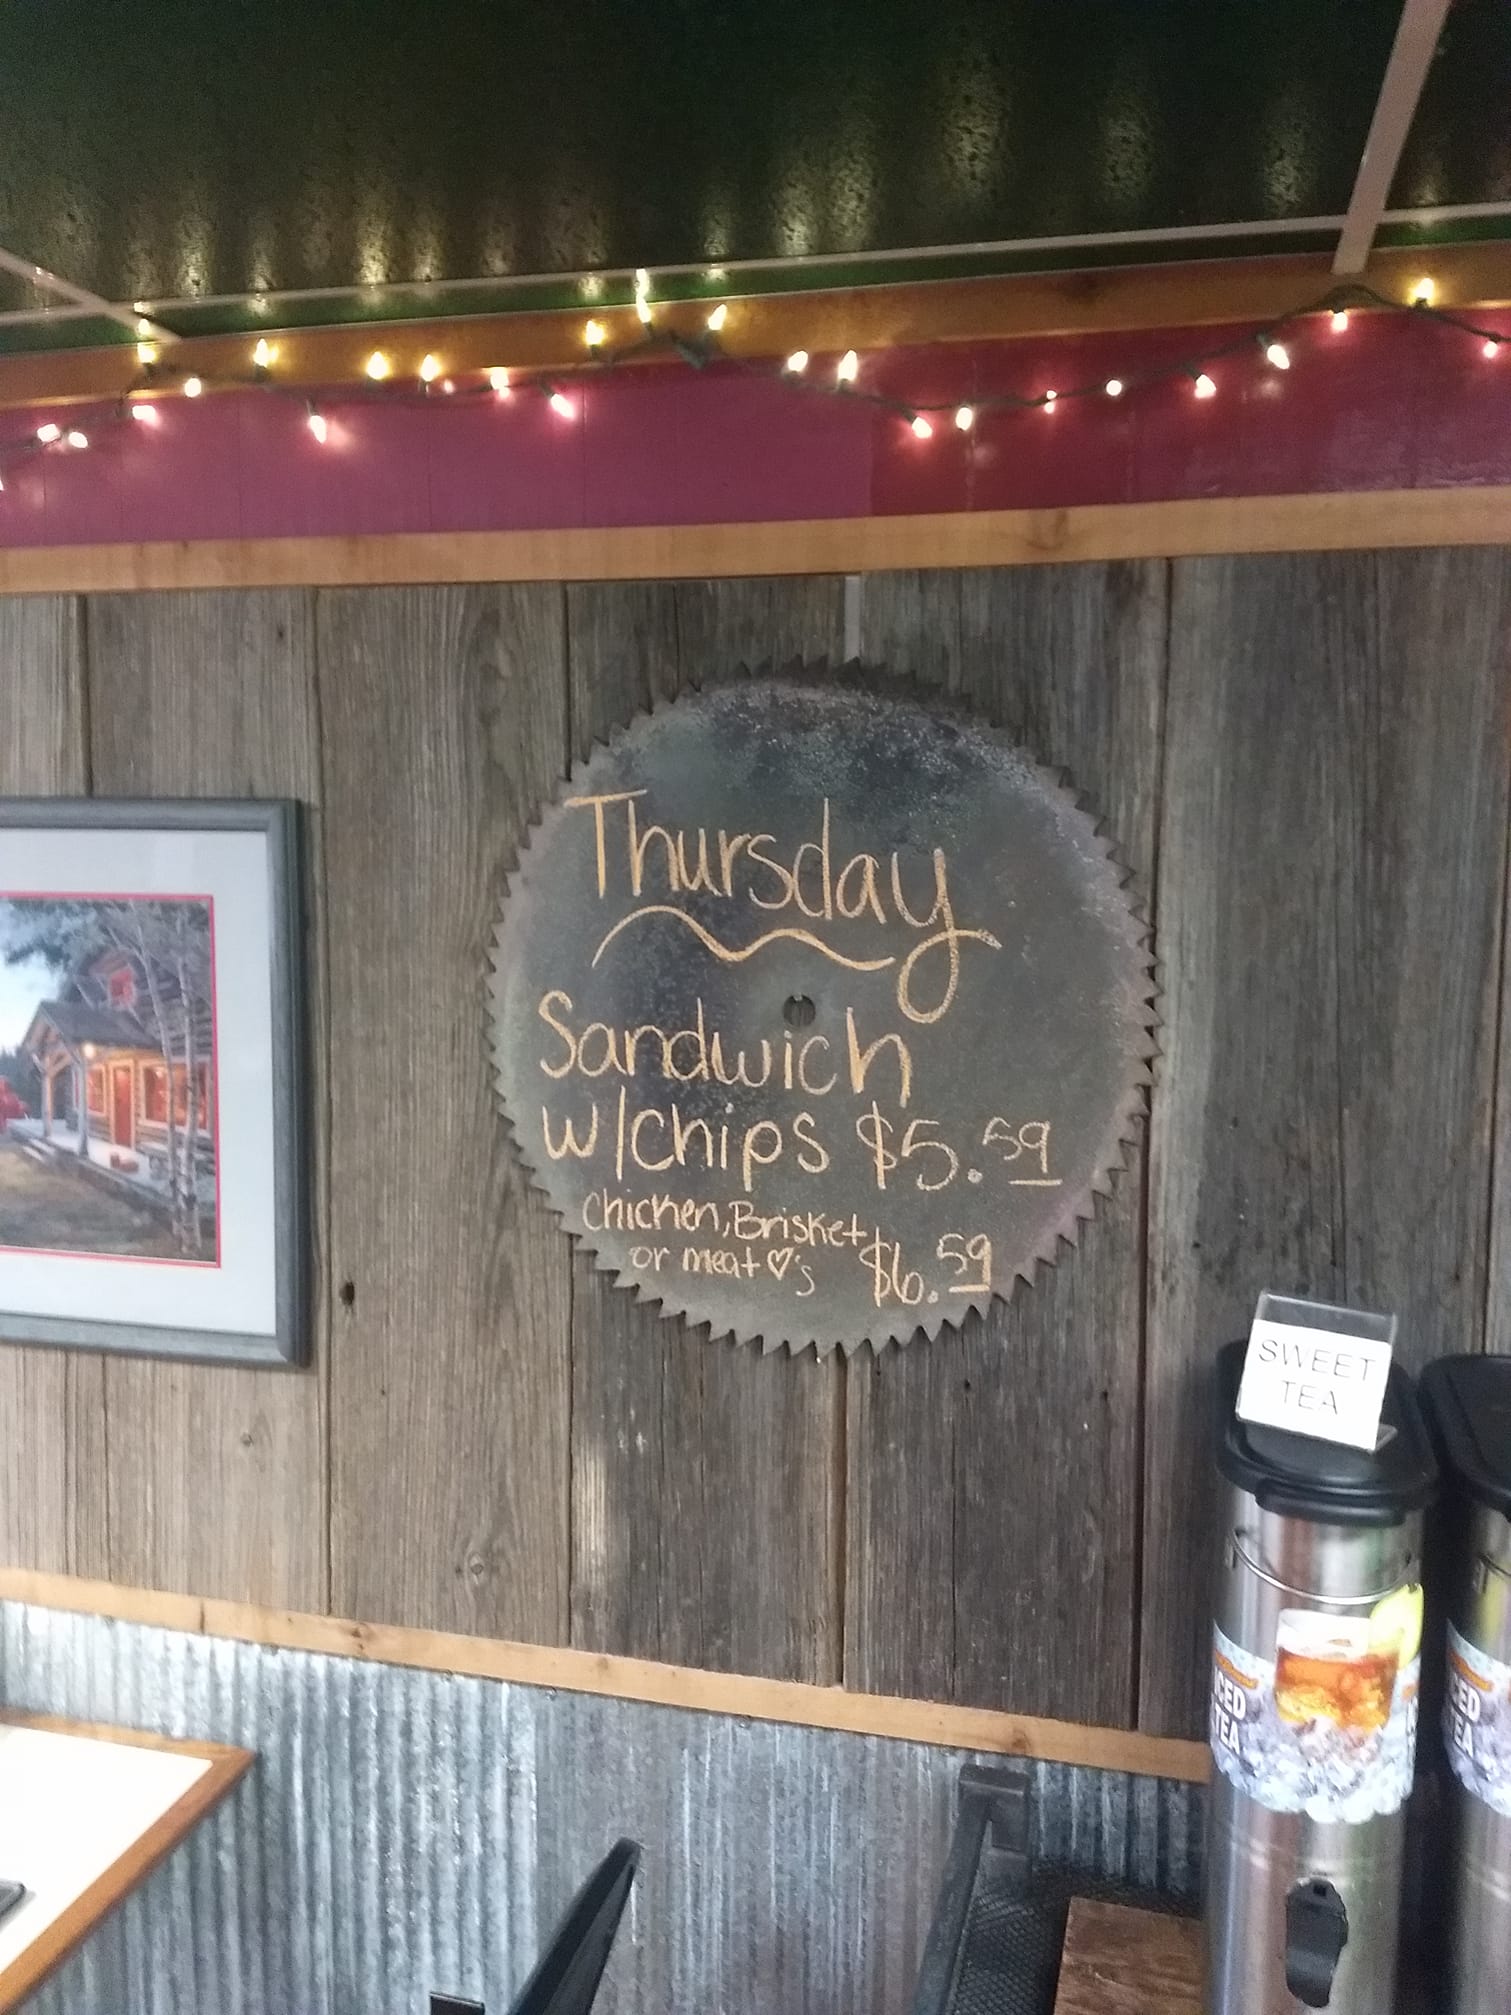 Thursday
Sandwich
w/chips $5.59
chicken, Brisket
or meat♡'s $6.59
SWEET
TEA
ICED
TEA